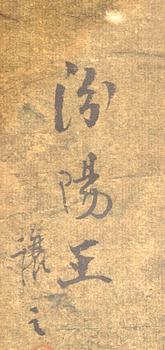 汾陽王
讓之